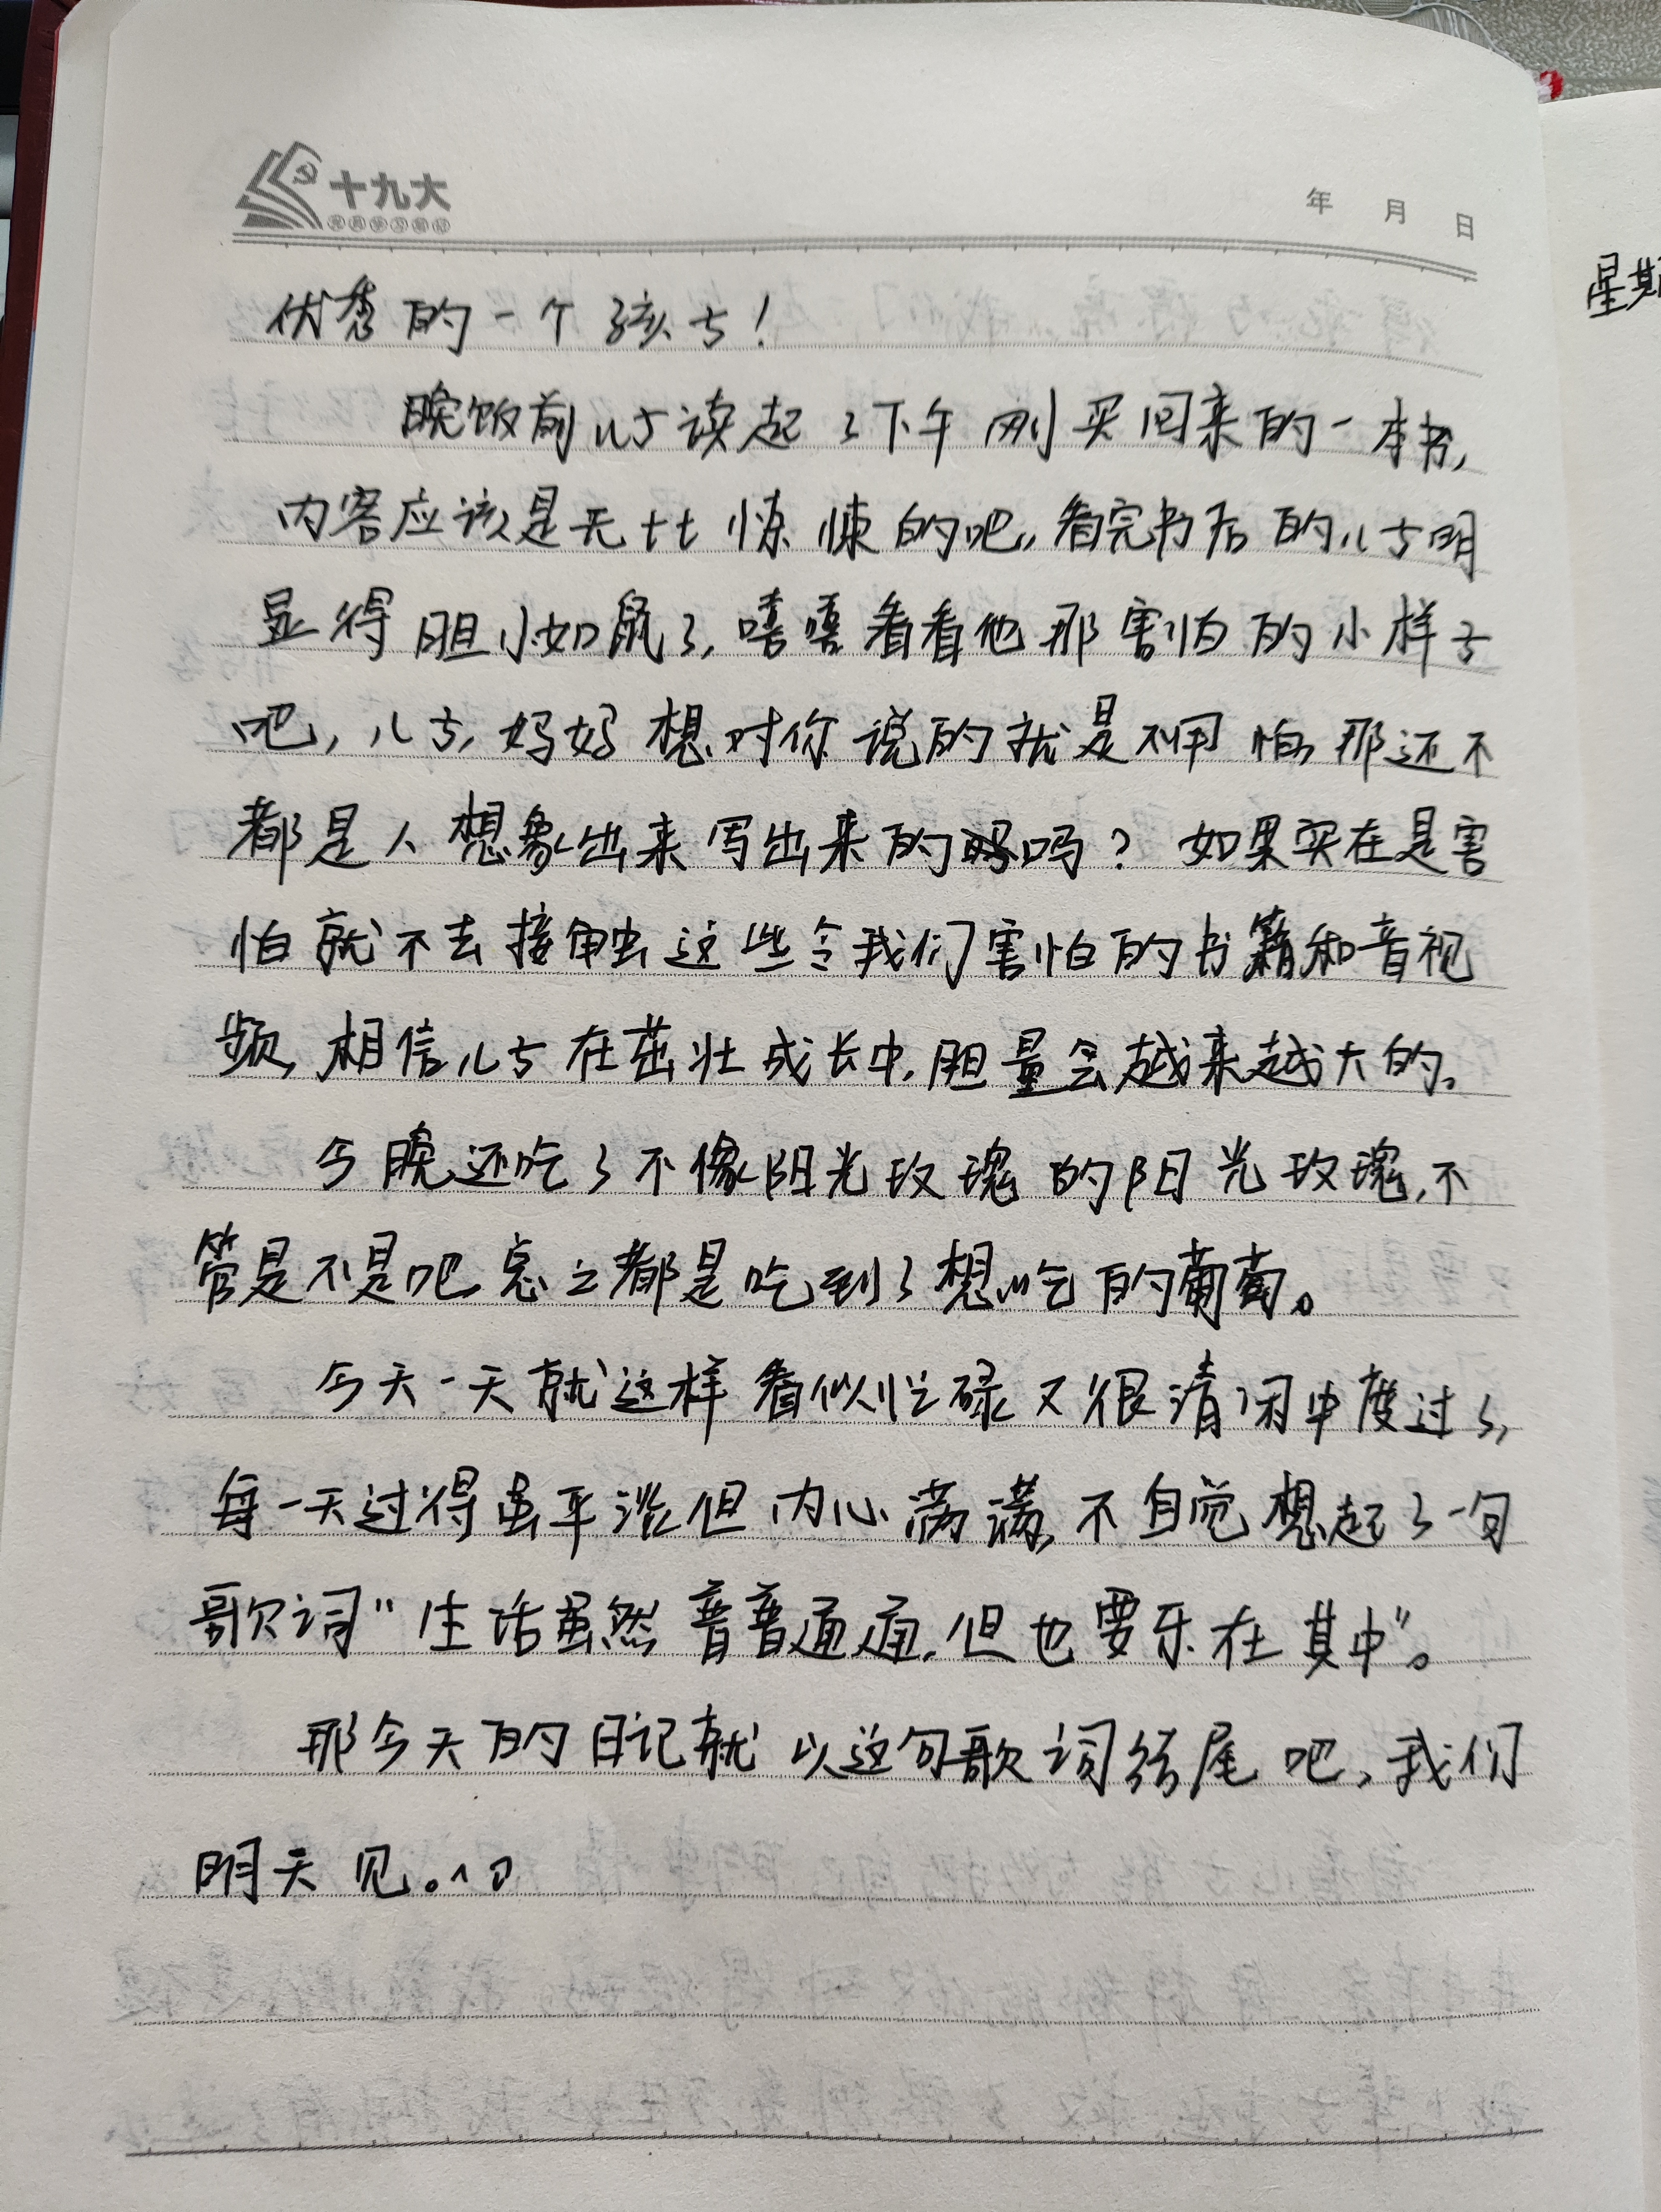 十九大
年 月 日
星期
优秀的一个孩子!
晚饭前儿子读起了下午刚买回来的一本书,
内容应该是无比惊悚的吧,看完书后的儿子明
显得胆小如鼠了,嘻嘻看看他那害怕的小样子
吧,儿子,妈妈想对你说的就是不用怕,那还不
都是人想象出来写出来的吗?如果实在是害
怕就不去接触这些令我们害怕的书籍和音视
频,相信儿子在茁壮成长中,胆量会越来越大的。
今晚还吃了不像阳光玫瑰的阳光玫瑰,不
管是不是吧,总之都是吃到了想吃的葡萄。
今天一天就这样看似忙碌又很清闲中度过了,
每一天过得虽平淡但内心满满,不自觉想起了一句
歌词“生活虽然普普通通,但也要乐在其中”。
那今天的日记就以这句歌词结尾吧,我们
明天见。